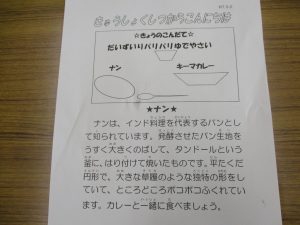 きゅうしょくしつからこんにちは
☆きょうのこんだて☆
だいずいりパリパリゆでやさい
ナン
キーマカレー
★ナン★
ナンは、インド料理を代表するパンとし
て知られています。発酵させたパン生地を
うすく大きくのばして、タンドールという
釜に、はり付けて焼いたものです。平たくだ
円形で、大きな草履のような独特の形をし
ていて、ところどころボコボコふくれてい
ます。カレーと一緒に食べましょう。